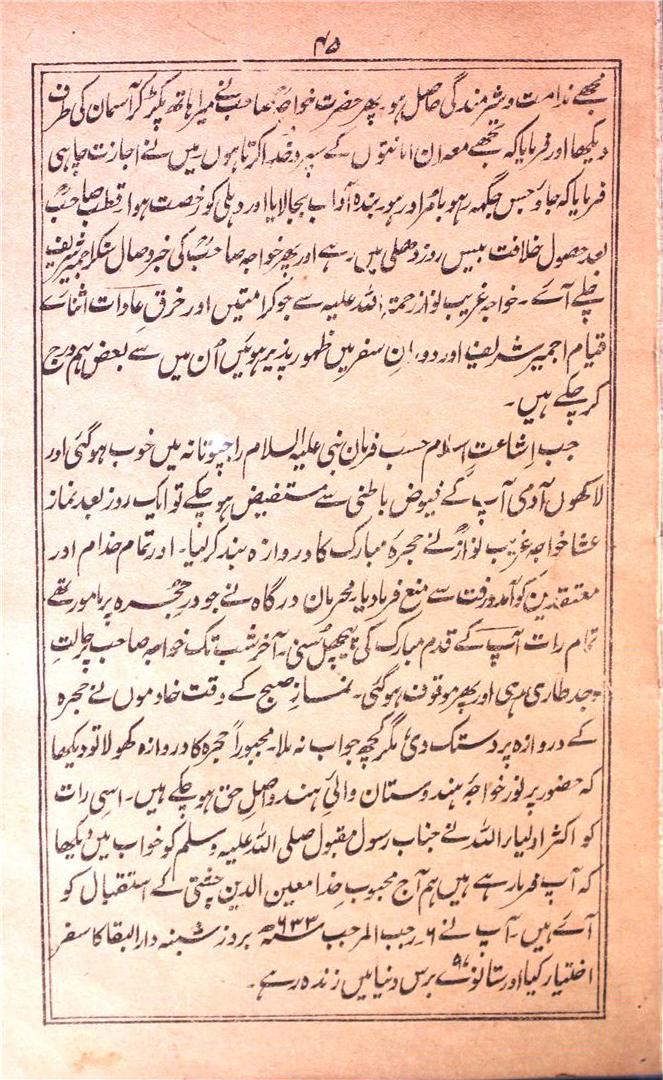 ۴۵
مجھے ندامت و شرمندگی حاصل ہو۔ پھر حضرت خواجہ صاحب نے میرا ہاتھ پکڑ کر آسمان کی طرف
دیکھا اور فرمایا کہ تجھے معہ ان امانتوں کے سپرد خدا کرتا ہوں میں نے اجازت چاہی
فرمایا کہ جاؤ جس جگہ رہو بامراد رہو بندہ آداب بجا لایا اور دہلی کو رخصت ہوا قطب صاحبؒ
بعد حصول خلافت بیس روز دھلی میں رہے اور پھر خواجہ صاحبؒ کی خبر وصال سنکر اجمیر شریف
چلے آئے۔ خواجہ غریب نواز رحمۃ اللہ علیہ سے جو کرامتیں اور خرق عادات اثنائے
قیام اجمیر شریف اور دوران سفر میں ظہور پذیر ہوئیں اُن میں سے بعض ہم درج
کر چکے ہیں۔
جب اِشاعتِ اسلام حسب فرمان نبی علیہ السلام راجپوتانہ میں خوب ہو گئی اور
لاکھوں آدمی آپ کے فیوض باطنی سے مستفیض ہو چکے تو ایک روز بعد نماز
عشا خواجہ غریب نوازؒ نے حجرۂ مبارک کا دروازہ بند کر لیا۔ اور تمام خدام اور
معتقدین کو آمد و رفت سے منع فرما دیا۔ محرمان درگاہ نے جو درِ حجرہ پر مامور تھے
تمام رات آپ کے قدم مبارک کی سنی۔ آخر شب تک خواجہ صاحب پر حالتِ
وجد طاری رہی اور پھر موقوف ہو گئی۔ نماز صبح کے وقت خادموں نے حجرہ
کے دروازہ پر دستک دی مگر کچھ جواب نہ ملا۔ مجبوراً حجرہ کا دروازہ کھولا تو دیکھا
کہ حضور پر نور خواجۂ ہندوستان والئِ ہند واصلِ حق ہو چکے ہیں۔ اسی رات
کو اکثر اولیاء اللہ نے جناب رسول مقبول صلی اللہ علیہ وسلم کو خواب میں دیکھا
کہ آپ فرما رہے ہیں ہم آج محبوبِ خدا معین الدین چشتی کے استقبال کو
آئے ہیں۔ آپ نے ۶۔ رجب المرجب سنہ ۶۳۳ھ بروز شنبہ دار البقا کا سفر
اختیار کیا اور ستانوے ۹۷ برس دنیا میں زندہ رہے۔